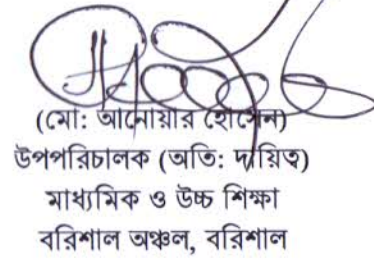 (মো: আনোয়ার হোসেন)
উপপরিচালক (অতি: দায়িত্ব)
মাধ্যমিক ও উচ্চ শিক্ষা
বরিশাল অঞ্চল, বরিশাল